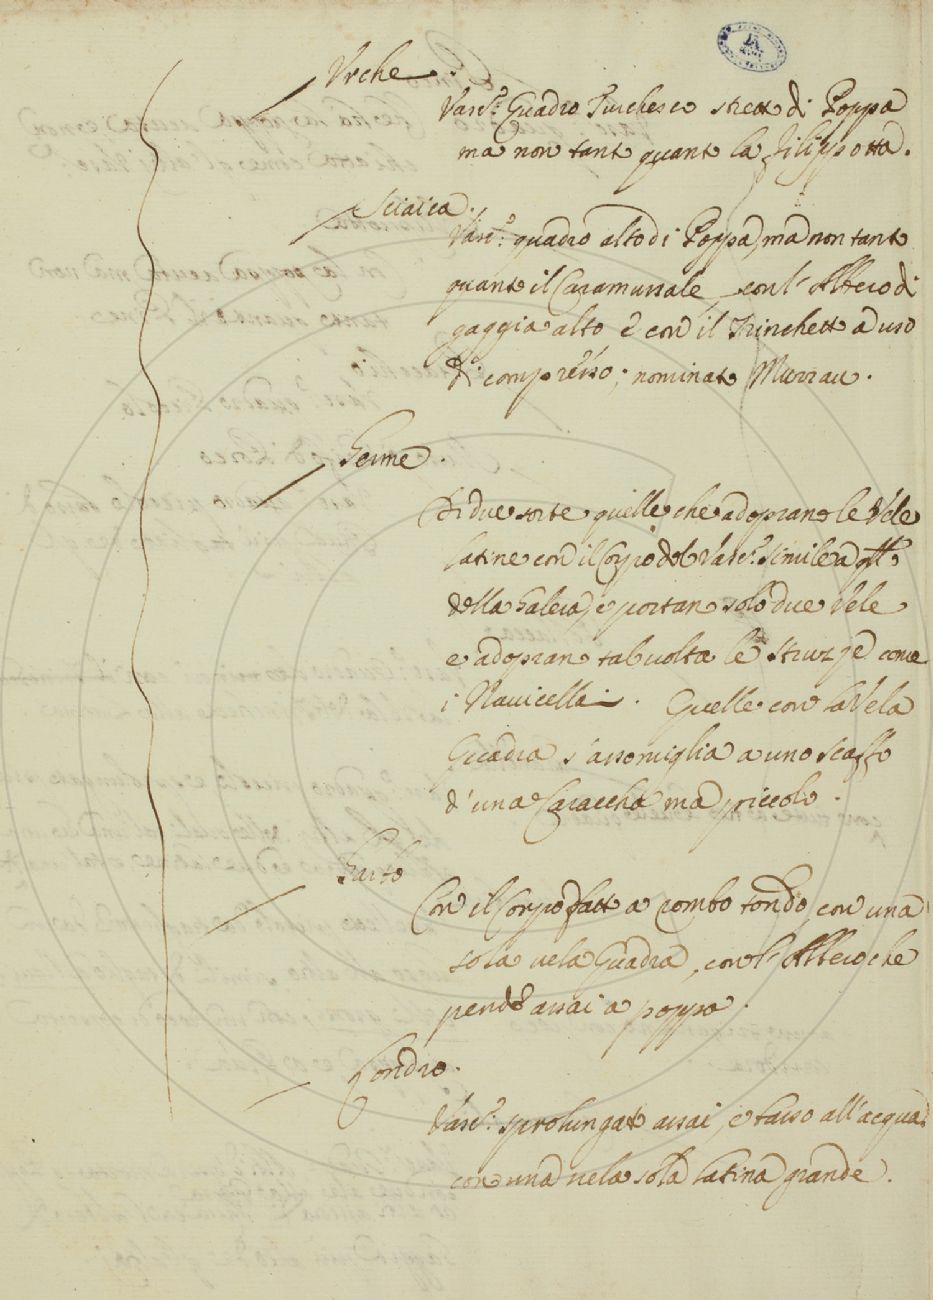 Urche.
Vasc.º Quadro Turchesco strett di Poppa
ma non tantº quantº la filippotta.
Sciaica.
Vasc.º quadro alto di Poppa, ma non tantº
quantº il Caramussale, con l'Albero di
gaggia alto è con il Trinchettº a uso
di compresso; nominatº
Germe.
Di due sorte quelle che adoprano le Vele
latine con il Corpo del Vasc.º simile a qllº
della Galera, e portan solo due Vele
e adopran tal volta le Struzze come
i Navicelli. Quelle con la Vela
Quadra s'assomiglia a uno scaffo
d'una Caracchα ma piccolo.
Garbo
Con il Corpo fattº a tondo, con una
sola vela Quadra, con l'Albero che
pende assai a poppa.
Londro.
Vasc.º sprolungatº assai, e basso all'acqua
con una vela sola latina grande.